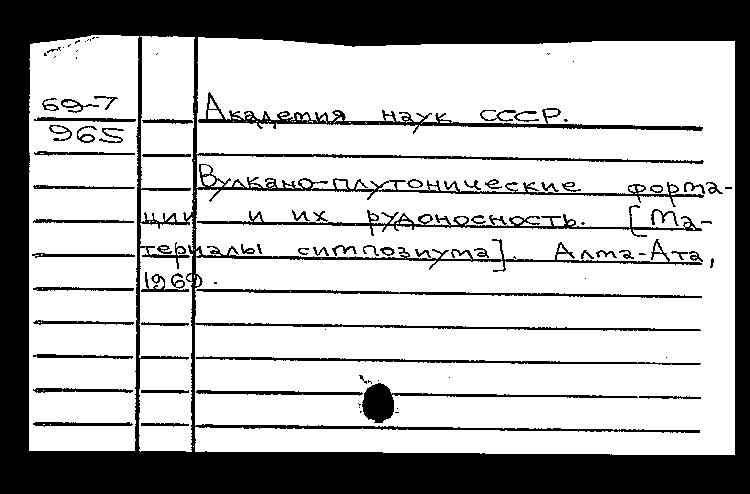 69-7
965
Академия наук СССР.
Вулкано-плутонические форма-
ции и их рудоносность. [Ма-
териалы симпозиума]. Алма-Ата,
1969.